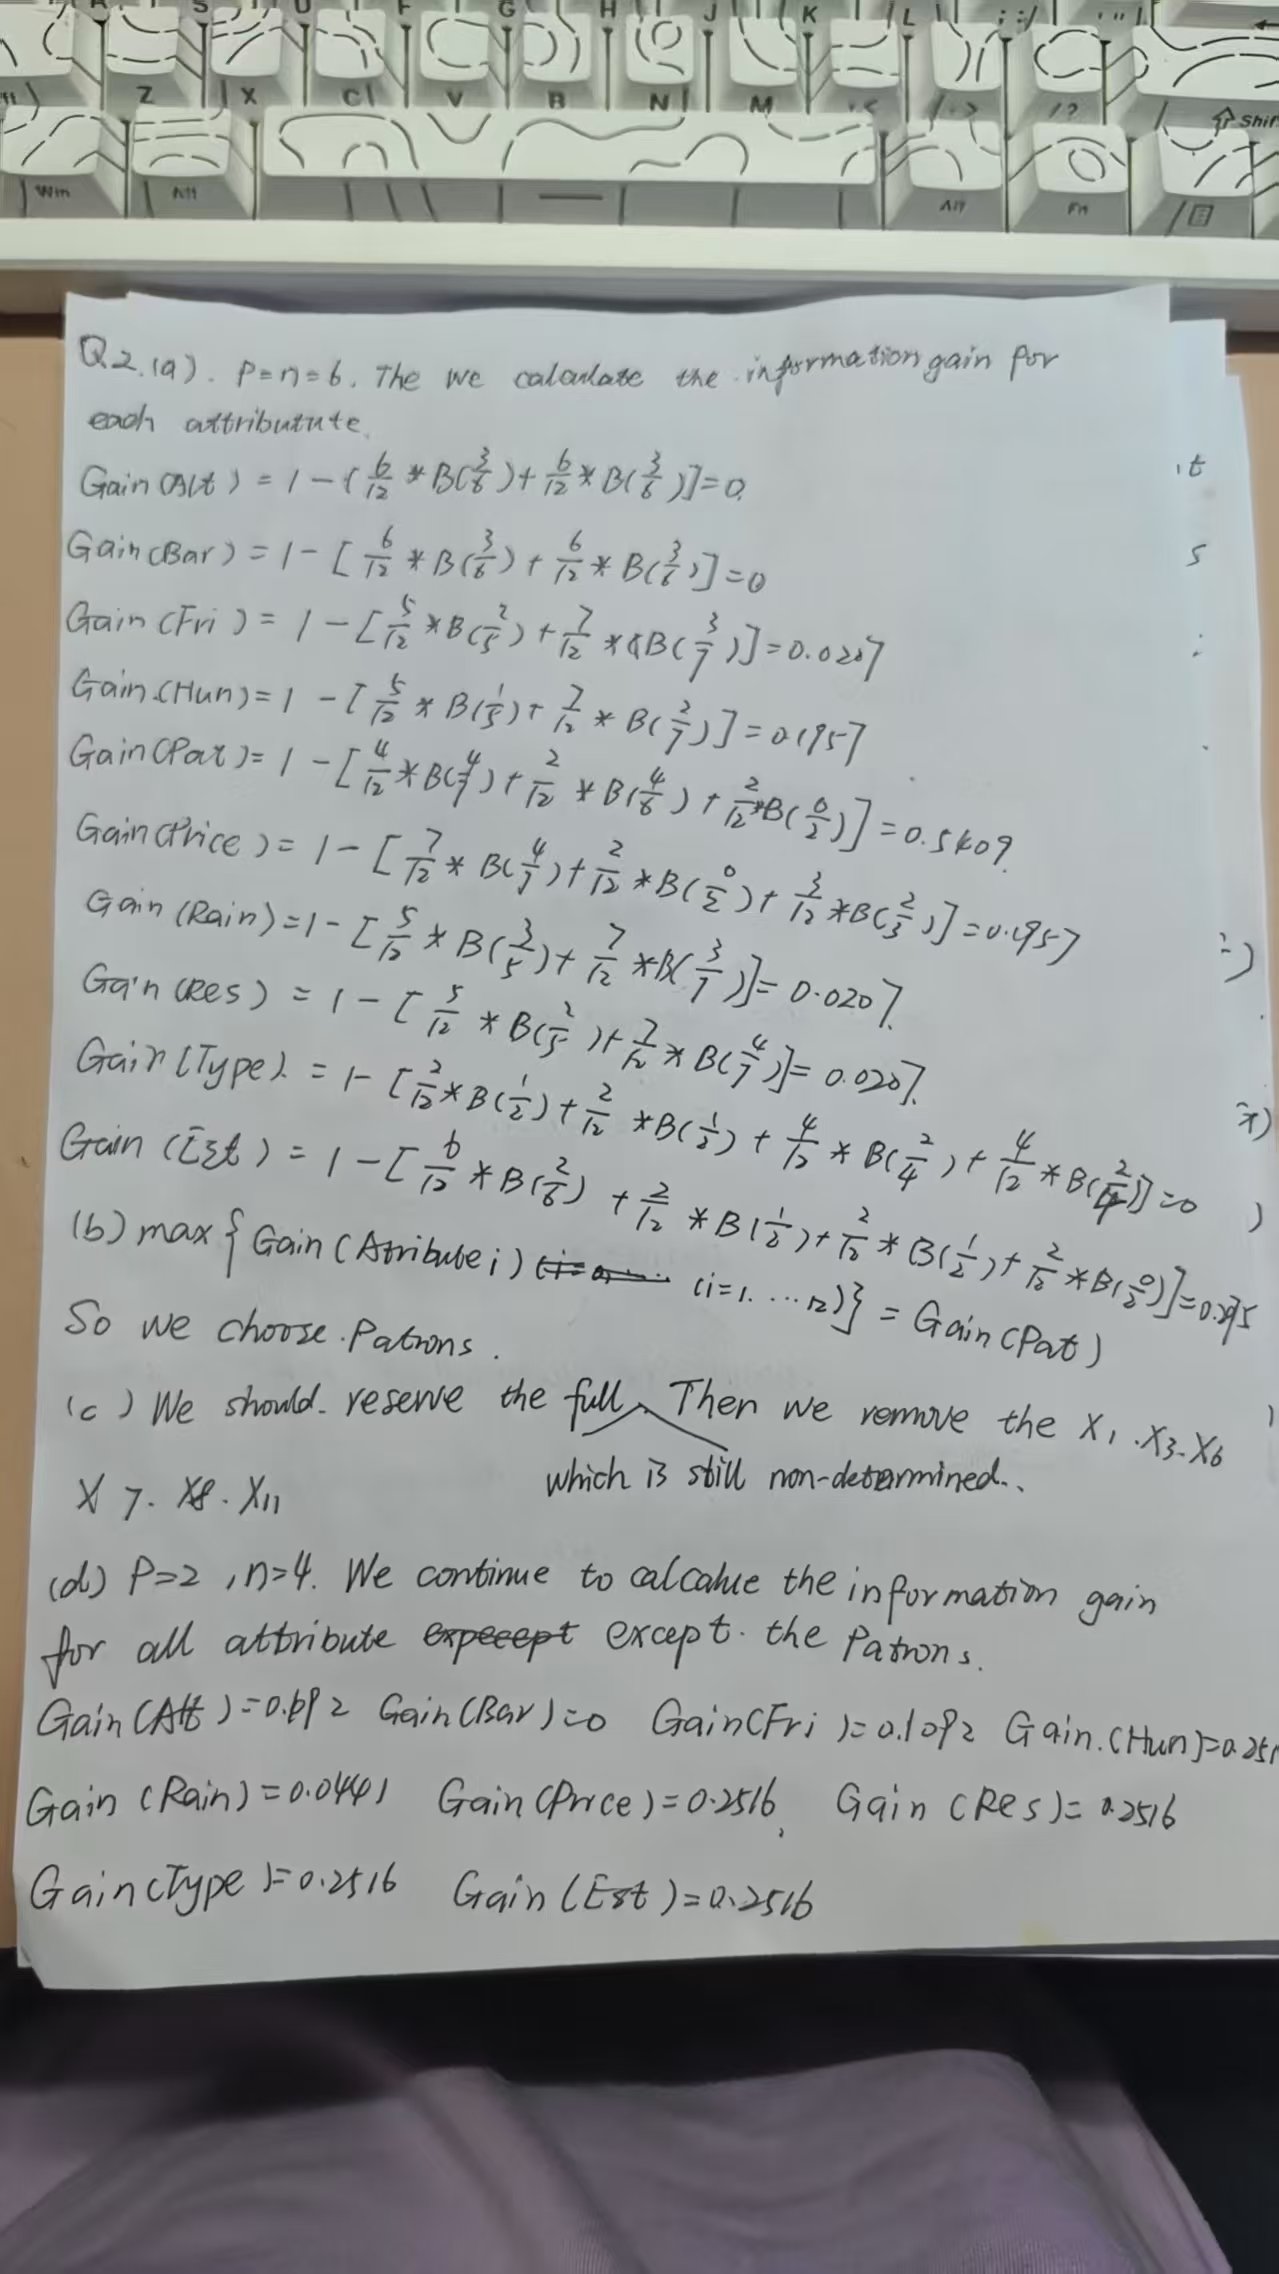 Z X C V B N M < > / ?
Shif
Win Alt Alt Fn
Q2.(a). P=n=6. The we calculate the information gain for
each attributute.
Gain(Alt) = 1-[6/12*B(3/6)+6/12*B(3/6)]=0.
Gain(Bar) = 1-[6/12*B(3/6)+6/12*B(3/6)]=0
Gain(Fri) = 1-[5/12*B(2/5)+7/12*B(3/7)]=0.0207
Gain(Hun)=1-[5/12*B(1/5)+7/12*B(2/7)]=0.1957
Gain(Pat)=1-[4/12*B(4/4)+2/12*B(4/6)+2/12*B(0/2)]=0.5409.
Gain(Price)=1-[7/12*B(4/7)+2/12*B(0/2)+3/12*B(2/3)]=0.1957
Gain(Rain)=1-[5/12*B(3/5)+7/12*B(3/7)]=0.0207.
Gain(Res) = 1-[5/12*B(2/5)+7/12*B(4/7)]=0.0207.
Gain(Type). = 1-[2/12*B(1/2)+2/12*B(1/2)+4/12*B(2/4)+4/12*B(2/4)]=0
Gain(Est) = 1-[6/12*B(2/6)+2/12*B(1/2)+2/12*B(1/2)+2/12*B(0/2)]
(b) max{Gain(Atribute i) (i=1....12)} = Gain(Pat)
So we choose Patrons.
(c) We should reserve the full. Then we remove the X1.X3.X6
which is still non-determined..
X7. X8. X11
(d) P=2, n=4. We continue to calcalue the information gain
for all attribute expecept except the Patrons.
Gain(Alt)= Gain(Bar)=0 Gain(Fri)=0.1092 Gain.(Hun)=0.251
Gain(Rain)=0.0441 Gain(Price)=0.2516, Gain(Res)=0.2516
Gain(Type)=0.2516 Gain(Est)=0.2516